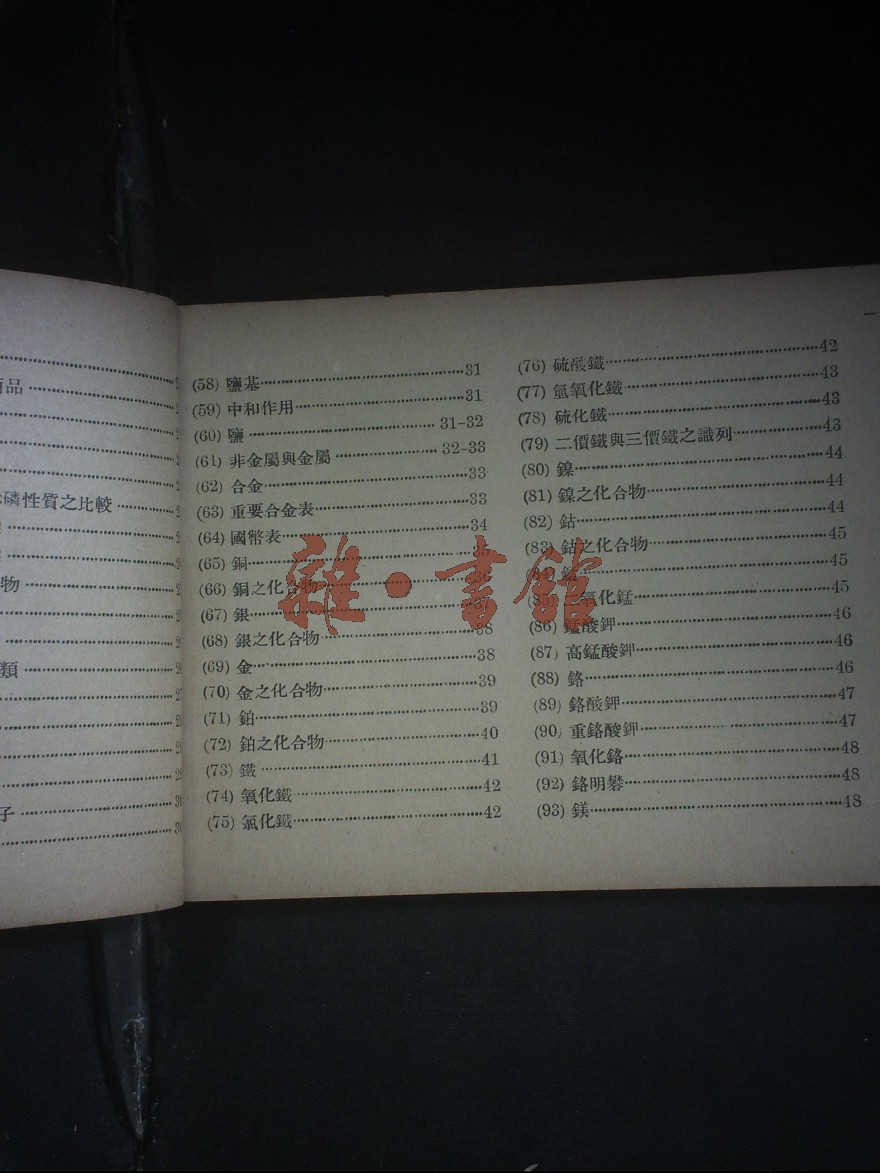 商品
磷性質之比較
物
類
子
(58) 鹽基 31
(59) 中和作用 31
(60) 鹽 31-32
(61) 非金屬與金屬 32-33
(62) 合金 33
(63) 重要合金表 33
(64) 國幣表 34
(65) 銅 35
(66) 銅之化合物 36
(67) 銀 37
(68) 銀之化合物 38
(69) 金 38
(70) 金之化合物 39
(71) 鉑 39
(72) 鉑之化合物 40
(73) 鐵 41
(74) 氧化鐵 42
(75) 氯化鐵 42
一
(76) 硫酸鐵 42
(77) 氫氧化鐵 43
(78) 硫化鐵 43
(79) 二價鐵與三價鐵之識列 43
(80) 鎳 44
(81) 鎳之化合物 44
(82) 鈷 44
(83) 鈷之化合物 45
錳 45
氧化錳 45
(86) 錳酸鉀 46
(87) 高錳酸鉀 46
(88) 鉻 46
(89) 鉻酸鉀 47
(90) 重鉻酸鉀 47
(91) 氧化鉻 48
(92) 鉻明礬 48
(93) 鎂 48
雜·書館